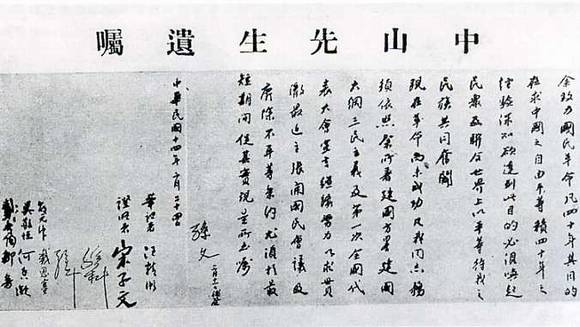 中山先生遺囑
余致力國民革命凡四十年其目的
在求中國之自由平等積四十年之
經驗深知欲達到此目的必須喚起
民眾及聯合世界上以平等待我之
民族共同奮鬥
現在革命尚未成功凡我同志務
須依照余所著建國方略建國
大綱三民主義及第一次全國代
表大會宣言繼續努力以求貫
徹最近主張開國民會議及
廢除不平等條約尤須於最
短期間促其實現是所至囑
孫文 三月十一日補簽
中華民國十四年二月二十四日
筆記者 汪精衛
證明者 宋子文
孫科
戴恩賽
吳敬恆 何香凝
鄒魯